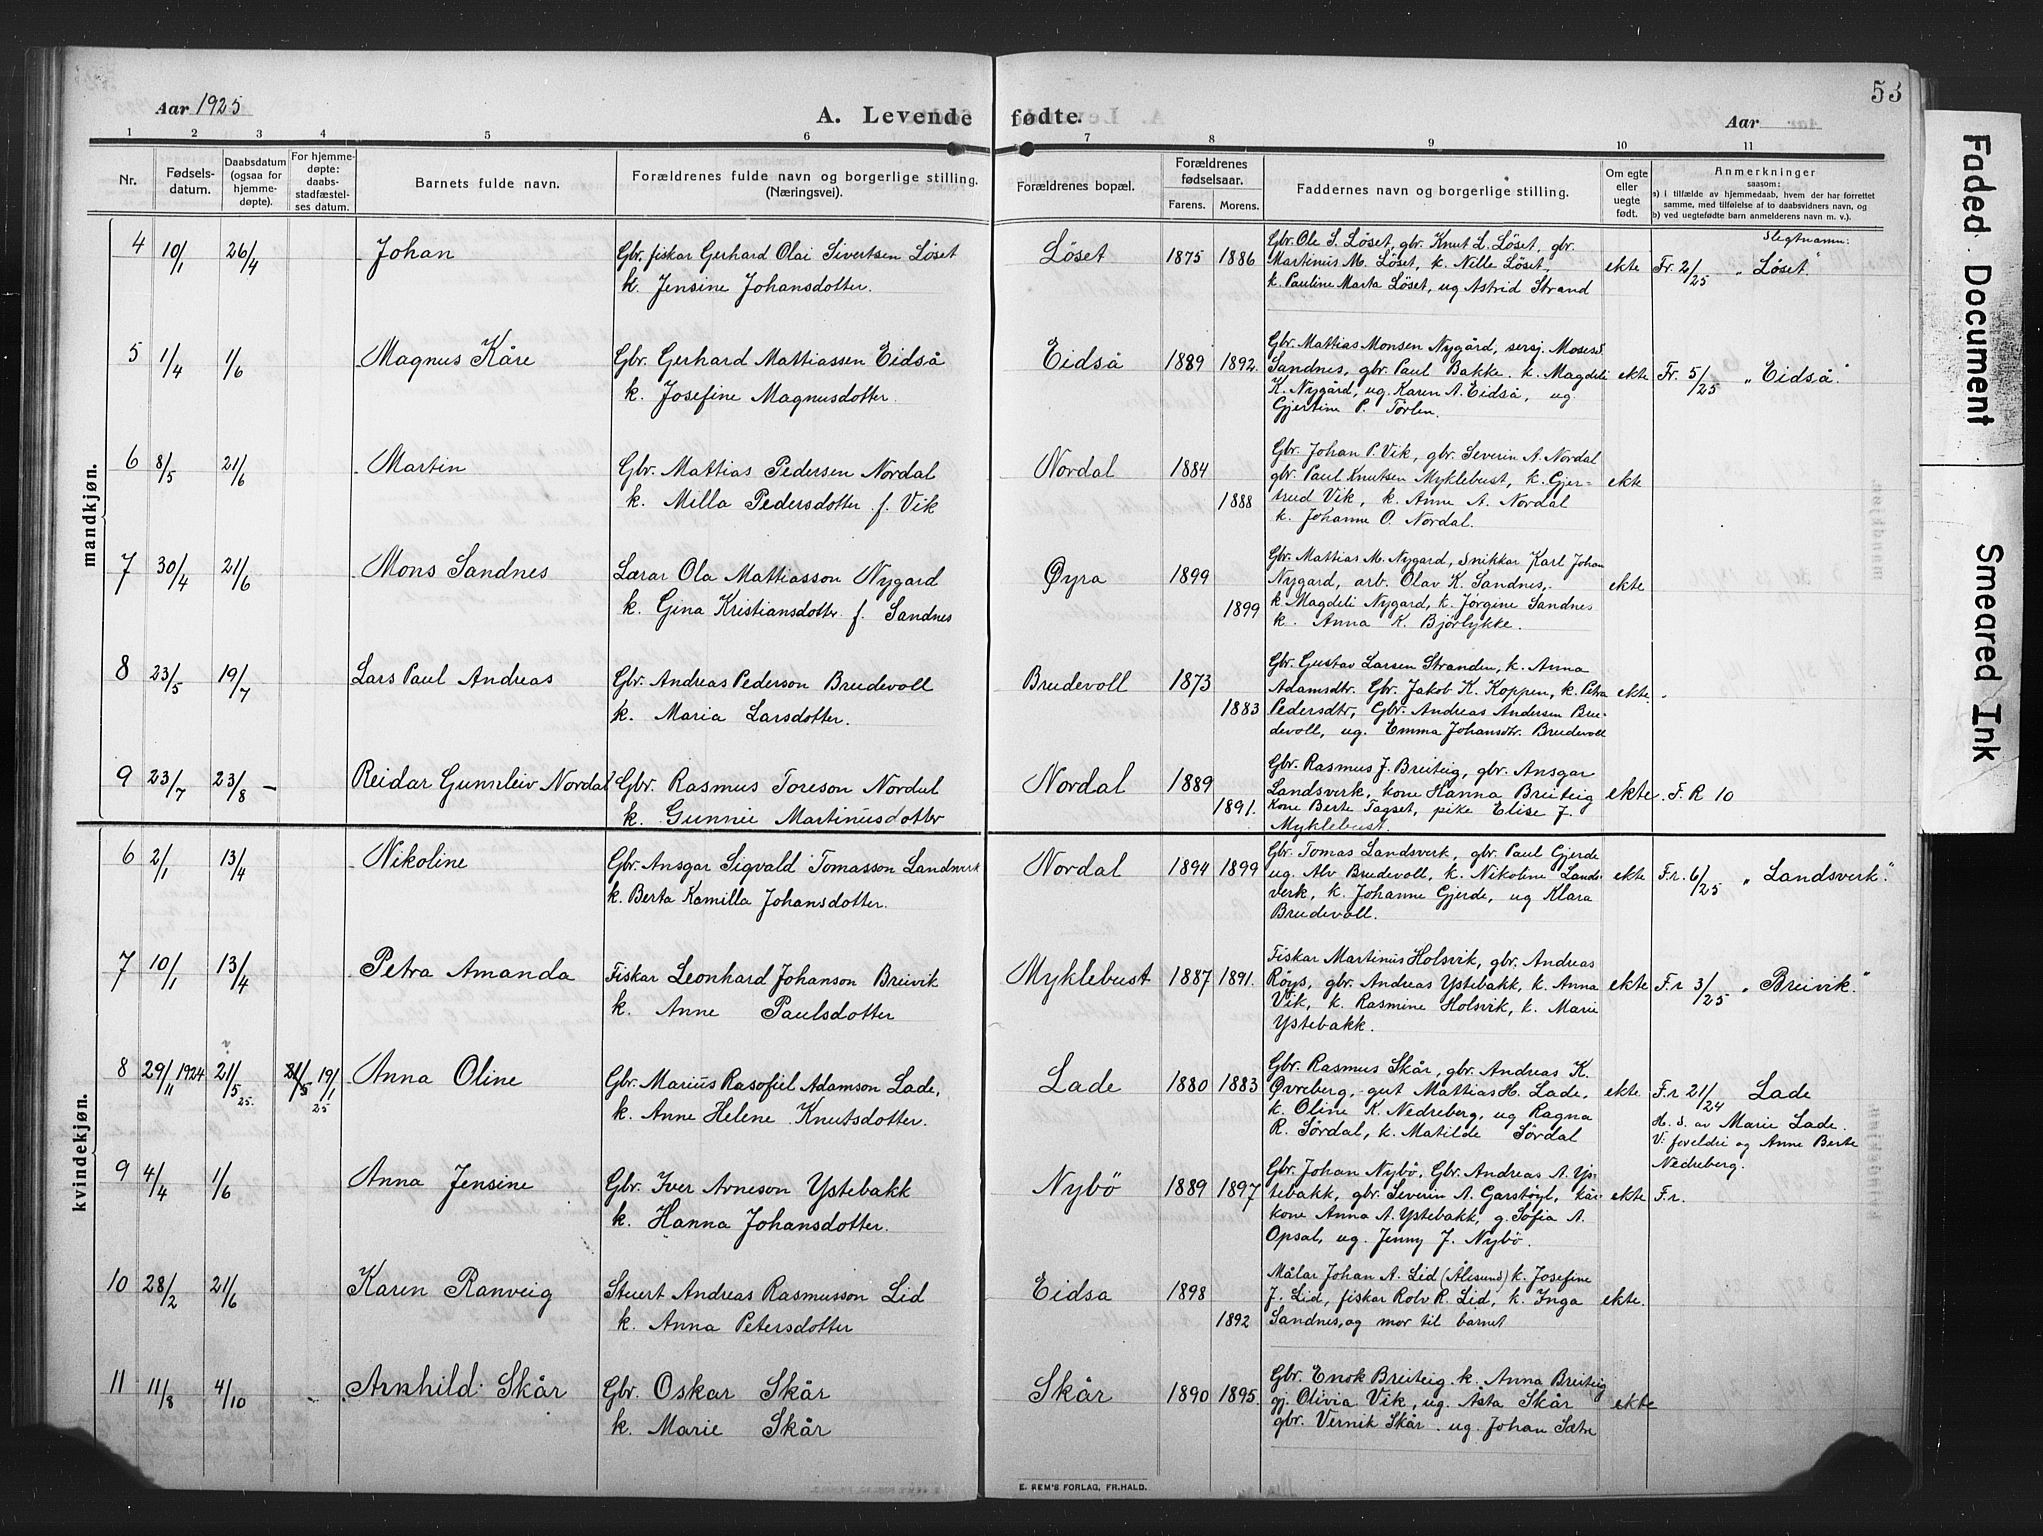 53
Aar 1925
A. Levende fødte.
Aar
1 2 3 4 5 6 7 8 9 10 11
Nr.
Fødsels-
datum.
Daabsdatum
(ogsaa for
hjemme-
døpte).
For hjemme-
døpte:
daabs-
stadfæstel-
ses datum.
Barnets fulde navn.
Forældrenes fulde navn og borgerlige stilling.
(Næringsvei).
Forældrenes bopæl.
Forældrenes
fødselsaar.
Farens. Morens.
Faddernes navn og borgerlige stilling.
Om egte
eller
uegte
født.
Anmerkninger
saasom:
a) i tilfælde av hjemmedaab, hvem der har forrettet
samme, med tilføielse af to daabsvidners navn, og
b) ved uegtefødte barn anmelderens navn m. v.).
mandkjøn.
4 10/1 26/4 Johan
Gbr. fiskar Gerhard Olai Sivertsen Løset
k. Jensine Johansdotter.
Løset 1875 1886
Gbr. Ole S. Løset, gbr. Knut L. Løset, gbr.
Martinus M. Løset, k. Nille Løset,
k. Pauline Marta Løset, ug Astrid Strand
ekte
Slegtnamn:
Fr. 2/25 „Løset."
5 1/4 1/6 Magnus Kåre
Gbr. Gerhard Mattiassen Eidså
k. Josefine Magnusdotter.
Eidså 1889 1892.
Gbr. Mattias Monsen Nygård, sersj. Moses
Sandnes, gbr. Paul Bakke. k. Magdeli
K. Nygård, ug. Karen A. Eidså, ug
Gjertine P. Tørlen.
ekte Fr. 5/25 „Eidså."
6 8/5 21/6 Martin
Gbr. Mattias Pedersen Nordal
k. Milla Pedersdotter f. Vik
Nordal 1884
1888
Gbr. Johan P. Vik, gbr. Severin A. Nordal
gbr. Paul Knutsen Myklebust, k. Gjer-
trud Vik, k. Anne A. Nordal
k. Johanne O. Nordal.
ekte
7 30/4 21/6 Mons Sandnes
Lærar Ola Mattiasson Nygard
k. Gina Kristiansdotter f. Sandnes
Øyra 1899
1899
Gbr. Mattias M. Nygard, Snikkar Karl Johan
Nygard, arb. Olav K. Sandnes,
k. Magdeli Nygard, k. Jørgine Sandnes
k. Anna K. Bjørlykke.
ekte
8 23/5 19/7 Lars Paul Andreas
Gbr. Andreas Pederson Brudevoll
k. Maria Larsdotter.
Brudevoll 1873
1883
Gbr. Gustav Larsen Stranden, k. Anna
Adamsdtr. Gbr. Jakob K. Koppen, k. Petra
Pedersdtr, Gbr. Andreas Andersen Bru-
devoll, ug. Emma Johansdtr. Brudevoll
ekte.
9 23/7 23/8 – Reidar Gunnleiv Nordal
Gbr. Rasmus Toreson Nordal
k. Gunnie Martinusdotter
Nordal 1889
1891.
Gbr. Rasmus J. Breiteig, gbr. Ansgar
Landsverk, kone Hanna Breiteig
Kone Berte Tagset, pike Elise J.
Myklebust.
ekte. F. R 10
kvindekjøn.
6 2/1 13/4 Nikoline
Gbr. Ansgar Sigvald Tomasson Landsverk
k. Berta Kamilla Johansdotter.
Nordal 1894 1899
Gbr. Tomas Landsverk, gbr. Paul Gjerde
ug. Alv Brudevoll, k. Nikoline Lands-
verk, k. Johanne Gjerde, ug Klara
Brudevoll.
ekte F.r. 6/25 „Landsverk."
7 10/1 13/4 Petra Amanda
Fiskar Leonhard Johanson Breivik
k. Anne Paulsdotter
Myklebust 1887 1891.
Fiskar Martinus Holsvik, gbr. Andreas
Røys, gbr. Andreas Ystebakk, k. Anna
Vik, k. Rasmine Holsvik, k. Marie
Ystebakk.
ekte F.r 3/25 „Breivik."
8 29/11 1924 21/5 25. 21/5 19/1 25 Anna Oline
Gbr. Marius Rasofiel Adamson Lade,
k. Anne Helene Knutsdotter.
Lade 1880 1883
Gbr. Rasmus Skår, gbr. Andreas K.
Øvreberg, gut Mattias H. Lade,
k. Oline K. Nedreberg, ug Ragna
R. Sørdal, k. Matilde Sørdal
ekte F.r 21/24 Lade
H. d. av Marie Lade.
V: foreldri og Anne Berte
Nedreberg.
9 4/4 1/6 Anna Jensine
Gbr. Iver Arneson Ystebakk
k. Hanna Johansdotter.
Nybö 1889 1897
Gbr. Johan Nybö, Gbr. Andreas A. Ys-
tebakk, gbr. Severin A. Garstøyl, kår-
kone Anna A. Ystebakk, g. Sofia A.
Opsal, ug. Jenny J. Nybö.
ekte F.r.
10 28/2 21/6 Karen Ranveig
Stuert Andreas Rasmusson Lid
k. Anna Petersdotter
Eidsa 1898
1892
Målar Johan A. Lid (Ålesund) k. Josefine
J. Lid, fiskar Rolv R. Lid, k. Inga
Sandnes, og mor til barnet
ekte.
11 11/8 4/10 Arnhild Skår
Gbr. Oskar Skår
k. Marie Skår
Skår 1890 1895.
Gbr. Enok Breiteig. k. Anna Breiteig
gj. Olivia Vik, ug. Åsta Skår
gbr. Vernik Skår. ug. Johan Sætre
ekte
E. SEM'S FORLAG, FR.HALD.
Faded Document
Smeared Ink